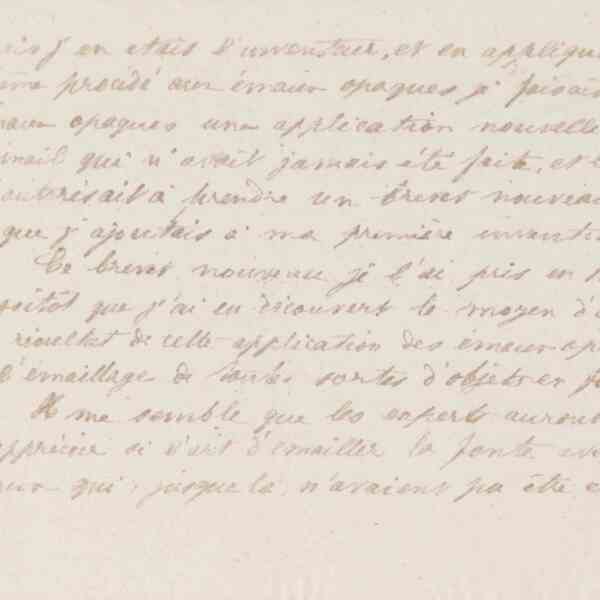 j'en étais l'inventeur, et en appliqu
procédé aux émaux opaques je faisais
opaques une application nouvelle
qui n'avait jamais été faite, et
autorisait à prendre un brevet nouveau
que j'ajoutais à ma première invention
Ce brevet nouveau je l'ai pris en
que j'ai eu découvert le moyen d'
résultat de cette application des émaux op
l'émaillage de toutes sortes d'objets en fo
Il me semble que les experts auront
apprécier si l'art d'émailler la fonte
qui jusque là n'avaient pu être